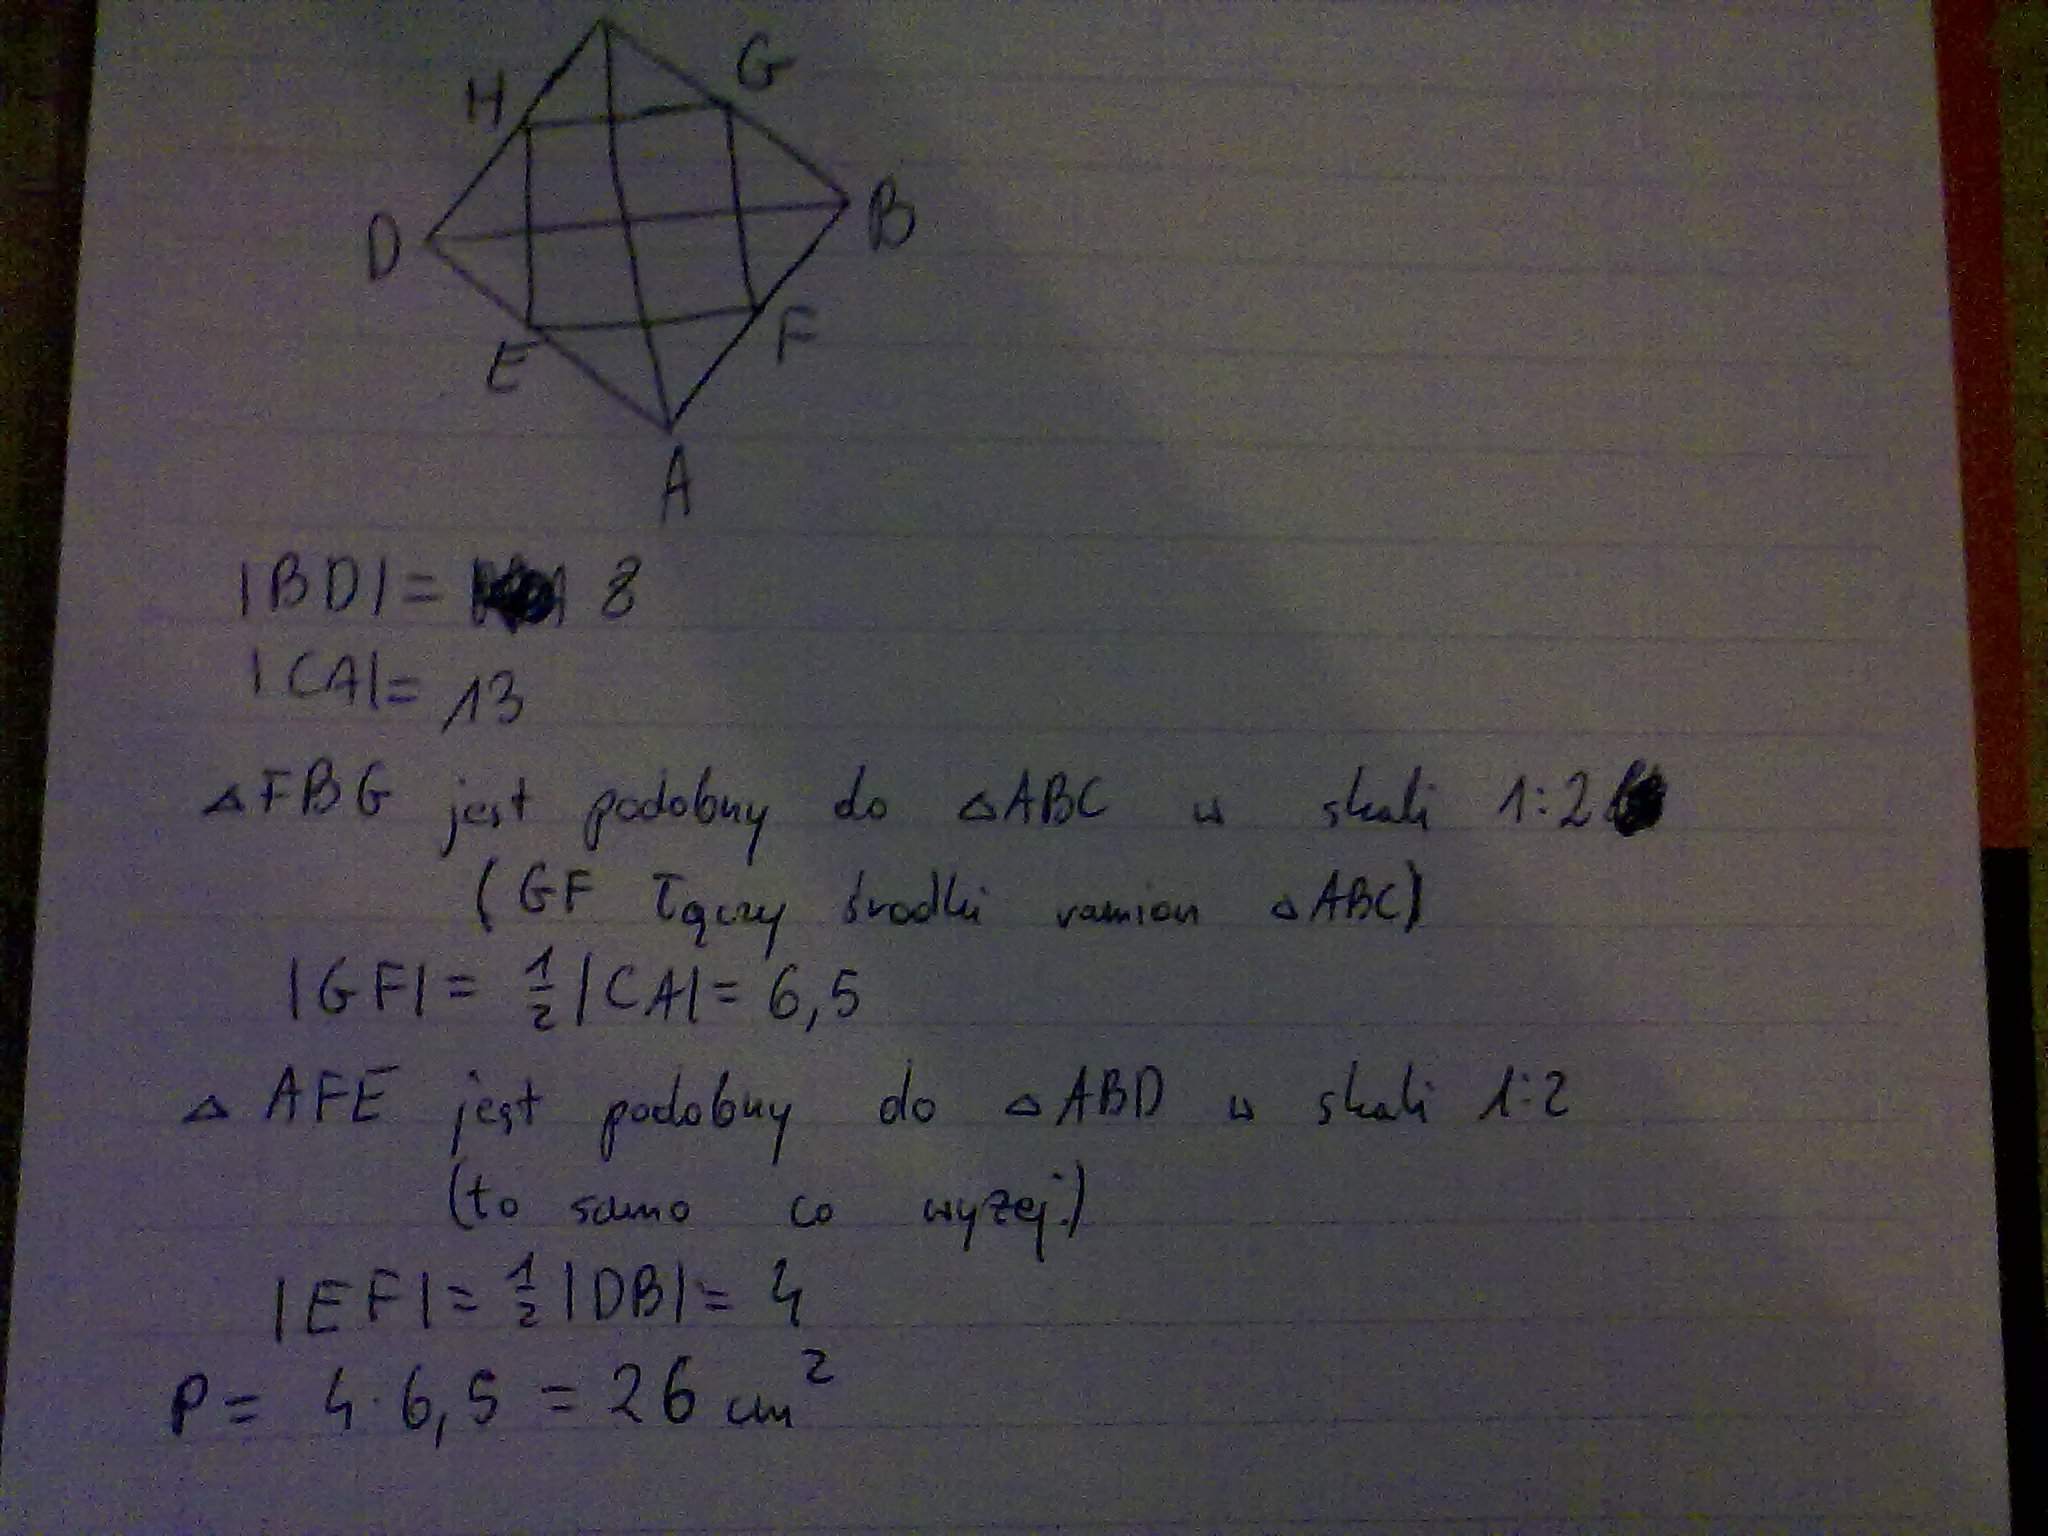 H G
D B
E F
A
|BD| = 8
|CA| = 13
△FBG jest podobny do △ABC w skali 1:2
(GF łączy środki ramion △ABC)
|GF| = 1/2 |CA| = 6,5
△ AFE jest podobny do △ABD w skali 1:2
(to samo co wyżej.)
|EF| = 1/2 |DB| = 4
P = 4·6,5 = 26 cm²